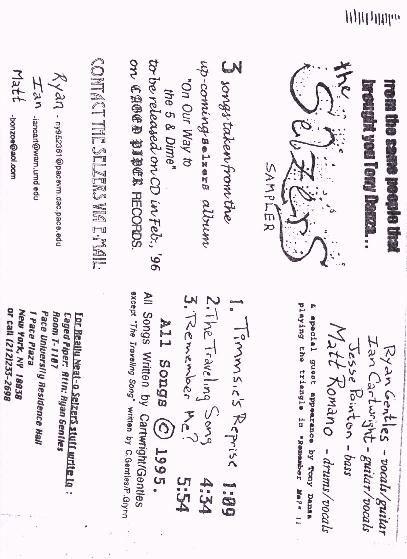 from the same people that
brought you Tony Danza...
the
Selzers
SAMPLER
3 songs taken from the
up-coming Selzers album
"On Our Way to
the 5 & Dime"
to be released on CD in Feb, '96
on CAGED PIPER RECORDS.
CONTACT THE SELZERS VIA E-MAIL
Ryan - ny952361@pacevm.dac.pace.edu
Ian -iancart@wam.umd.edu
Matt -bonzoe@aol.com
Ryan Gentles - vocals/guitar
Ian Cartwright - guitar/vocals
Jesse Pointon - bass
Matt Romano - drums/vocals
& special guest appearance by Tony Danza
playing the triangle in "Remember Me?" !!
1. Timmsie's Reprise 1:09
2. The Traveling Song 4:34
3. Remember Me? 5:54
All Songs © 1995.
All Songs Written by Cartwright/Gentles
except "The Traveling Song" written by C.Gentles/P.Glynn
For Really Neat-o Selzers stuff write to :
Caged Piper: Attn: Ryan Gentles
Room T-1107
Pace University Residence Hall
1 Pace Plaza
New York, NY 10038
or call (212)235-2698